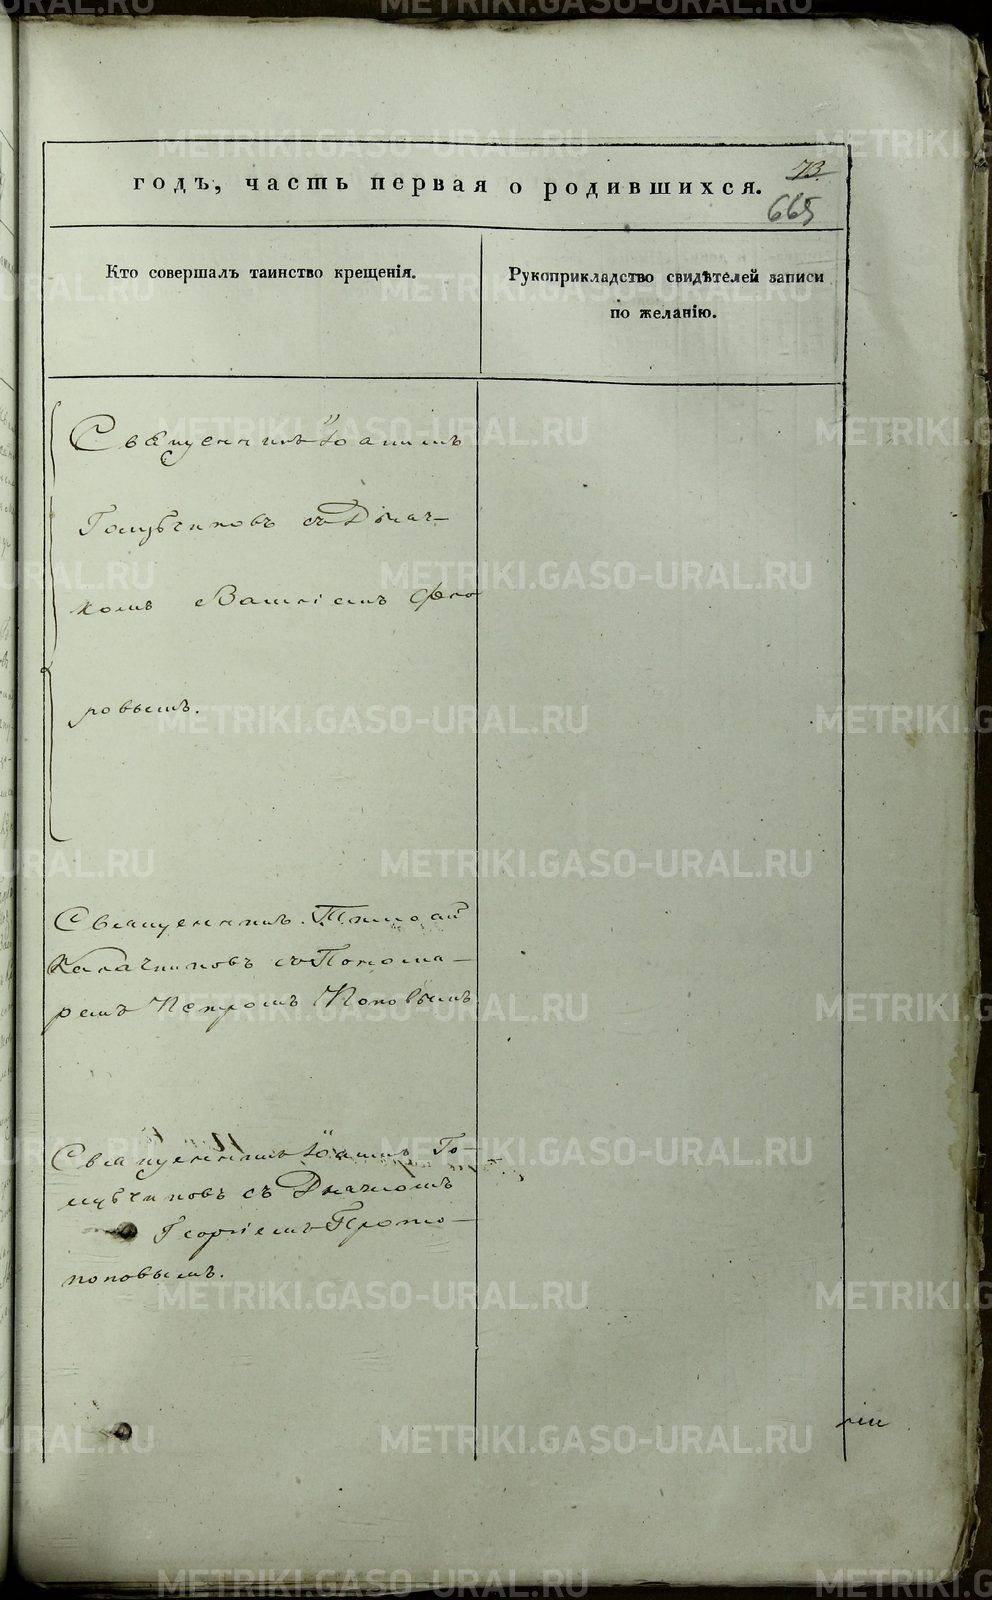 73.
годъ, часть первая о родившихся.
665
Кто совершалъ таинство крещенія.
Рукоприкладство свидѣтелей записи
по желанію.
Священникъ Іоаннъ
Голубчиковъ съ Дьяч-
комъ Василіемъ
ровымъ.
Священникъ Тимоѳей
Калачниковъ съ Понома-
ремъ Петромъ Поповымъ
Священникъ Іоаннъ Го-
лубчиковъ съ Дьячкомъ
Георгіемъ Прото-
поповымъ.
METRIKI.GASO-URAL.RU